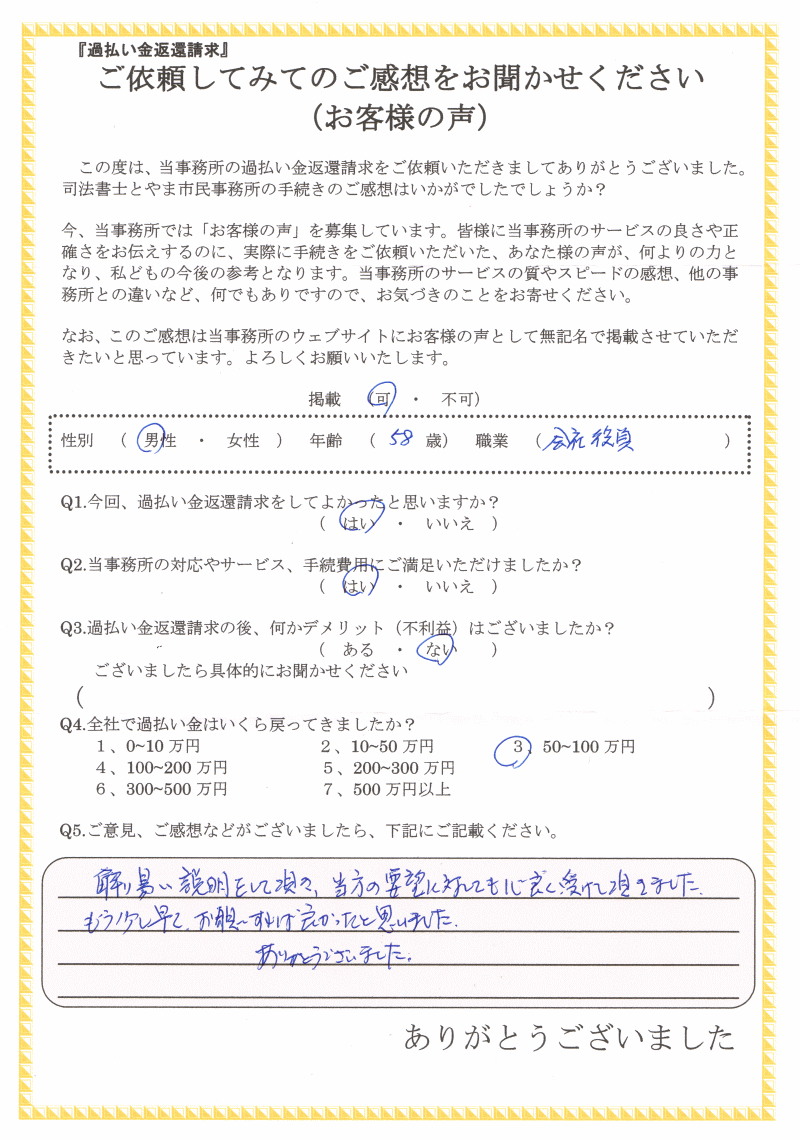 『過払い金返還請求』
ご依頼してみてのご感想をお聞かせください
（お客様の声）
この度は、当事務所の過払い金返還請求をご依頼いただきましてありがとうございました。
司法書士とやま市民事務所の手続きのご感想はいかがでしたでしょうか？
今、当事務所では「お客様の声」を募集しています。皆様に当事務所のサービスの良さや正
確さをお伝えするのに、実際に手続きをご依頼いただいた、あなた様の声が、何よりの力と
なり、私どもの今後の参考となります。当事務所のサービスの質やスピードの感想、他の事
務所との違いなど、何でもありですので、お気づきのことをお寄せください。
なお、このご感想は当事務所のウェブサイトにお客様の声として無記名で掲載させていただ
きたいと思っています。よろしくお願いいたします。
掲載 （可 ・ 不可）
性別 （ 男性 ・ 女性 ） 年齢 （ 58 歳） 職業 （ 会社役員 ）
Q1.今回、過払い金返還請求をしてよかったと思いますか？
（ はい ・ いいえ ）
Q2.当事務所の対応やサービス、手続費用にご満足いただけましたか？
（ はい ・ いいえ ）
Q3.過払い金返還請求の後、何かデメリット（不利益）はございましたか？
（ ある ・ ない ）
ございましたら具体的にお聞かせください
（ ）
Q4.全社で過払い金はいくら戻ってきましたか？
１、0~10 万円 ２、10~50 万円 ３、50~100 万円
４、100~200 万円 ５、200~300 万円
６、300~500 万円 ７、500 万円以上
Q5.ご意見、ご感想などがございましたら、下記にご記載ください。
解り易い説明をして頂き、当方の要望に対しても心良く受けて頂きました。
もう少し早く、お願いすれば良かったと思いました。
ありがとうございました。
ありがとうございました